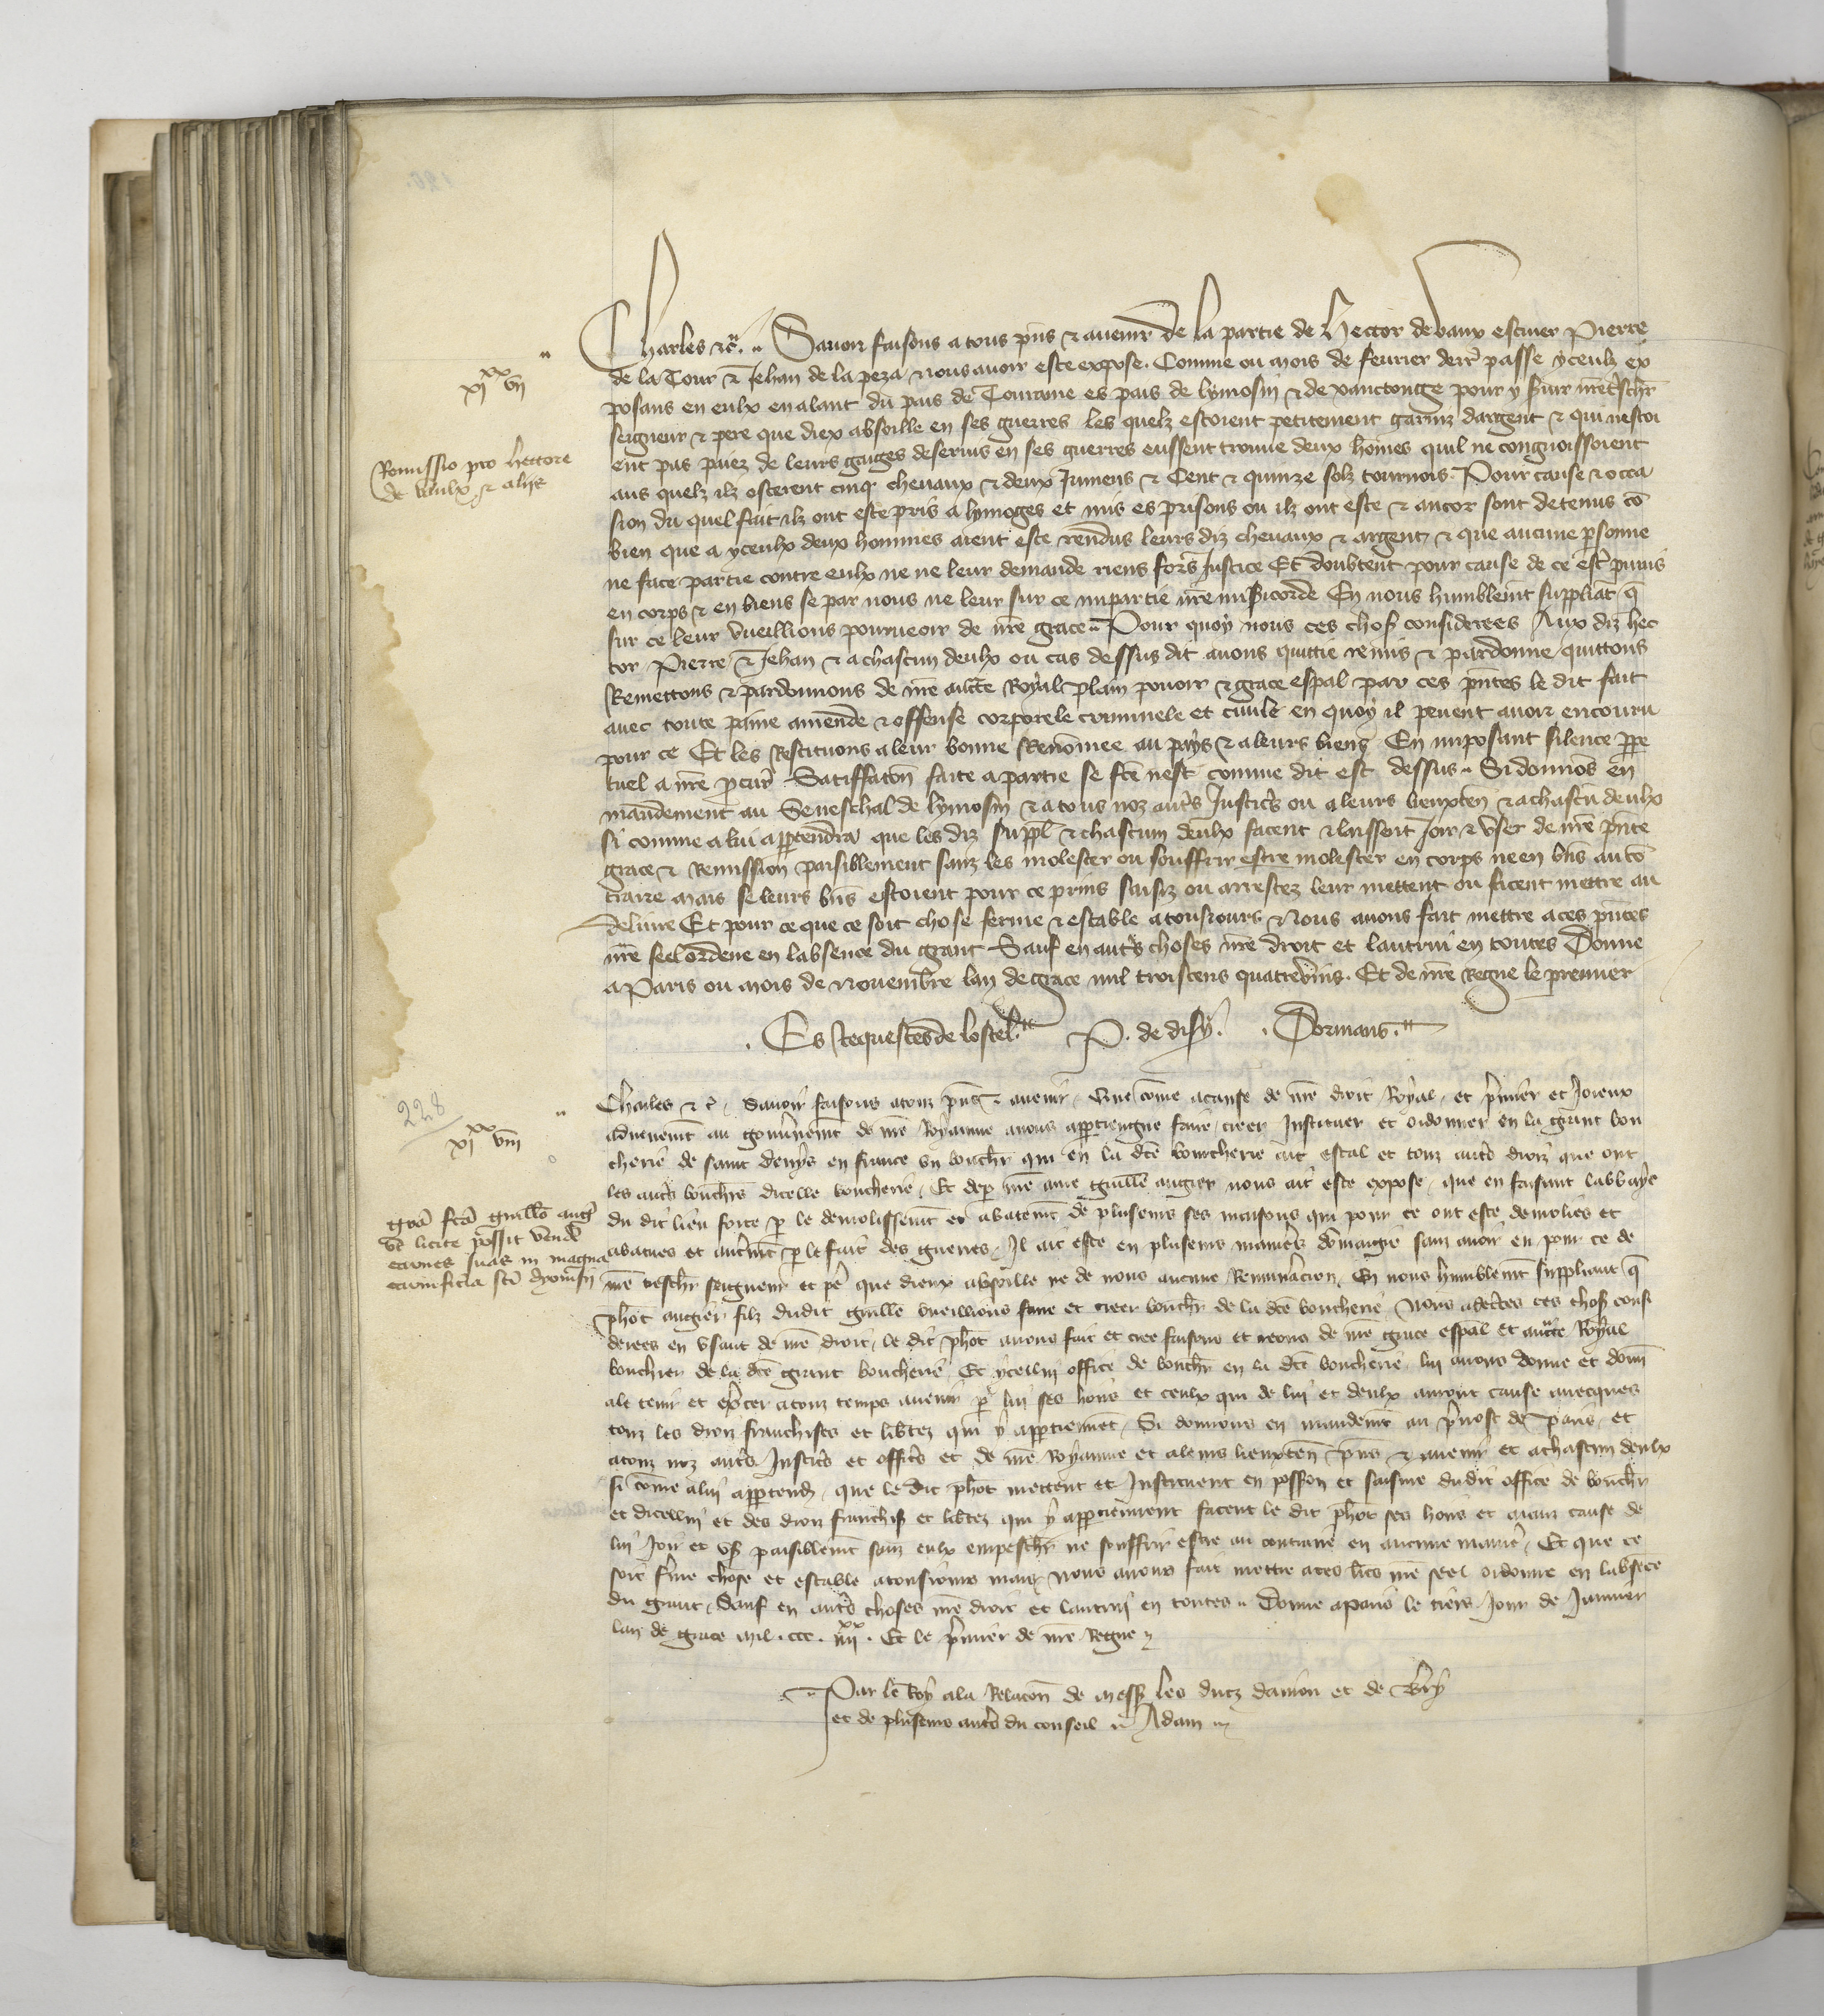 Charles etc. Savoir faisons a tous pns et avenir de la partie de Hector de vaux escuier Pierre
de la Tour et Jehan de la peza nous avoir este expose. Comme ou mois de fevrier derr passe yceulz ex
posans en eulx en alant du pais de Touraine es pais de lymosin et de xanctonge pour y svir nre treschr
seigneur et pere que diex absoille en ses guerres les quelz estoient petitement garniz dargent et qui nestoi
ent pas paiez de leurs gaiges deservis en ses guerres eussent trouve deux homes quil ne congnoissoient
aus quelz ilz osterent cinq chevaux et deux Jumens et Cent et quinze solz tournois. Pour cause et occa
sion du quel fait ilz ont este pris a lymoges et mis es prisons ou ilz ont este et ancor sont detenus co
bien que a yceulx deux hommes aient este rendus leurs diz chevaux et argent et que aucune psonne
ne face partie contre eulx ne ne leur demande riens fors Justice Et doubtent pour cause de ce estr punis
en corps et en biens se par nous ne leur sur ce impartie nre misicorde En nous humblemt suppliat q
sur ce leur vueillions pourveoir de nre grace Pour quoy nous ces chos considerees Aux diz Hec
tor Pierre et Jehan et a chascun deulx ou cas dessus dit avons quittie remis et pardonne quittons
Remettons et pardonnons de nre aucte Royal plain povoir et grace espal par ces pntes le dit fait
avec toute paine amende et offense corporele criminele et civile en quoy il pevent avoir encouru
pour ce Et les Restituons a leur bonne Renomee au pays et a leurs biens En imposant silence ppe
tuel a nre pcur Satiffaton faite a partie se fte nest comme dit est dessus Si donnos en
mandement au Seneschal de lymosin et a tous noz auts Justicrs ou a leurs lieuxten et a chascu deulx
si comme a lui appertendra que les diz suppl et chascun deulx facent et laissent Joir et user de nre pnte
grace et Remission paisiblement sanz les molester ou souffrir estre molester en corps ne en bns au co
traire mais se leurs bns estoient pour ce prins saisiz ou arrestez leur mettent ou facent mettre au
delivre Et pour ce que ce soit chose ferme et estable a tousiours Nous avons fait mettre a ces pntes
nre seel ordene en labsence du grant Sauf en auts choses nre droit et lautrui en toutes Donne
a Paris ou mois de Novembre lan de grace mil troiscens quatrevins. Et de nre Regne le premier
Es Requestes de lostel P. de disy. Dormans.
xi xx vii
Remissio pro hectore
de vaulx et aliis
Charles etc. Savoir faisons a touz pns et avenir que come a cause de nre droit Royal et pmier et Joieux
advenemt au gouvnemt de nre Royaume a nous appertiengne faire creer Instituer et ordonner en la grant bou
cherie de saint denys en france un bouchr qui en la dte boucherie ait estal et touz auts droiz que ont
les auts bouchrs dicelle boucherie Et dep nre ame guille augier nous ait este expose que en faisant labbaye
du dit lieu forte p le demolissemt et abatemt de plusieurs ses maisons qui pour ce ont este demolies et
abatues et autremt p le fait des guerres Il ait este en plusieurs manieres domaigie sanz avoir eu pour ce de
nre treschr seigneur et pe que dieux absoille ne de nous aucune Remunacion En nous humblemt suppliant q
phot augier filz dudit guille vueillions faire et creer bouchr de la dte boucherie Nous adcertes ces chos consi
derees en usant de nre droit le dit phot avons fait et cree faisons et creons de nre grace espal et aucte Royal
bouchier de la dte grant boucherie Et ycellui office de bouchr en la dte boucherie lui avons donne et donn
a le tenir et excer a touz temps avenir p lui ses hoirs et ceulx qui de lui et deulx auront cause avecques
touz les droiz franchises et libtez qui y appartiennet Si donnons en mandemt au pvost de Paris et
a touz noz auts Justicrs et officrs et de nre Royaume et a leurs lieuxten pns et avenir et a chascun deulx
si come a lui appertend que le dit phot mettent et Instituent en possion et saisine dudit office de bouchr
et dicellui et des droiz franchis et libtez qui y appartiennent facent le dit phot ses hoirs et aianz cause de
lui Joir et us paisiblemt sanz eulx empeschr ne souffrir estre au contraire en aucune manie Et que ce
soit fme chose et estable a tousiours mais nous avons fait mettre a ces lres nre seel ordonne en labsece
du grant Sauf en auts choses nre droit et lautrui en toutes Donne a paris le tiers Jour de Janvier
lan de grace mil ccc iiii xx Et le pmier de nre Regne
Par le Roy a la Relacon de mess les ducz danjou et de Bry
et de plusieurs auts du conseil Adam
228
xi xx viii
gra fca guillo augr
ut licite possit vendr
carnes suas in magna
carnificia sci dyonisii